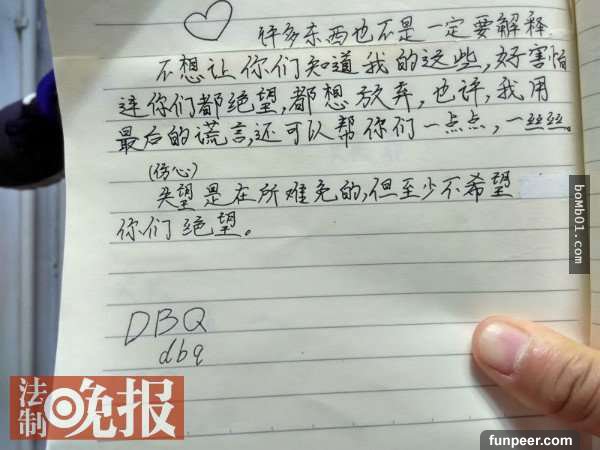 许多东西也不是一定要解释
不想让你们知道我的这些,好害怕
连你们都绝望,都想放弃,也许,我用
最后的谎言,还可以帮你们一点点,一丝丝。
(伤心)
失望是在所难免的,但至少不希望
你们绝望。
DBQ
dbq
法制晚报
bomb01.com
funpeer.com